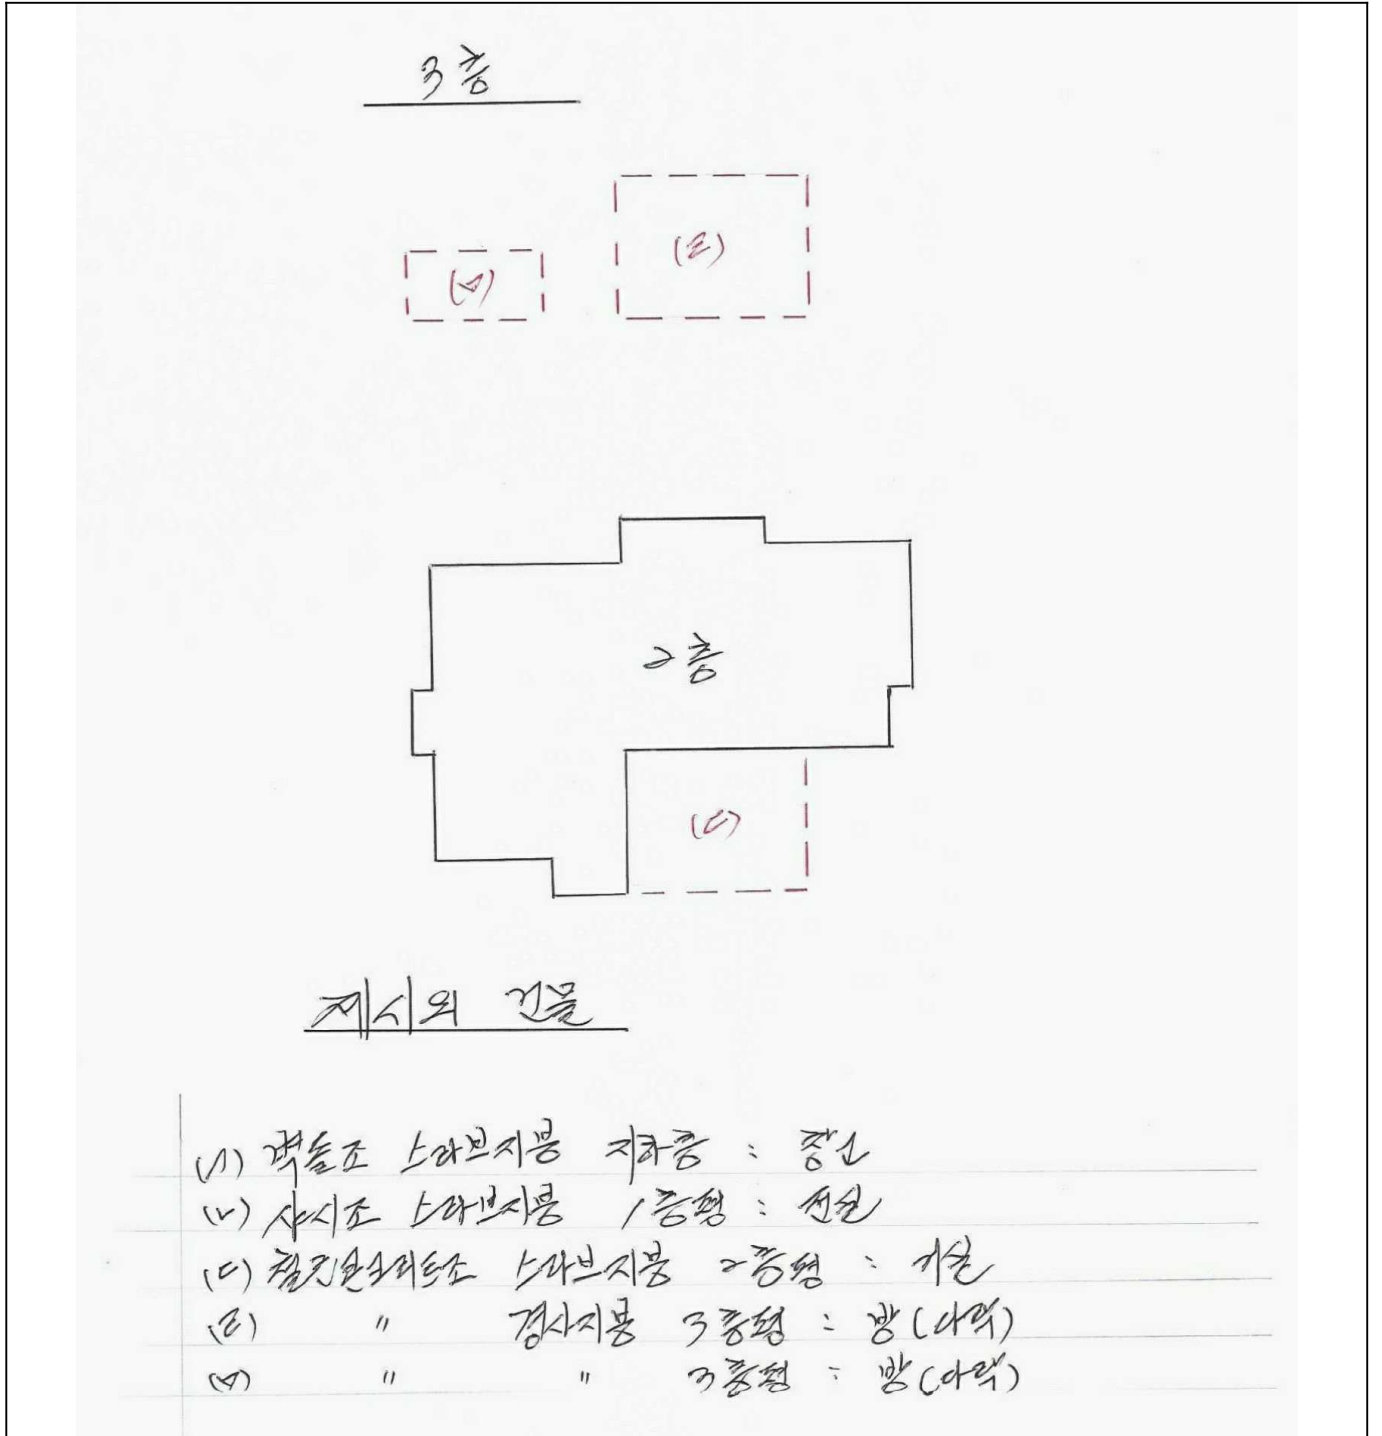 3층
(ㄹ)
(ㅁ)
2층
(ㄷ)
제시외 건물
(ㄱ) 벽돌조 스라브지붕 지하층 :
(ㄴ) 샷시조 스라브지붕 1층형 : 전실
(ㄷ) 철근콘크리트조 스라브지붕 2층형 : 거실
(ㄹ) " 경사지붕 3층형 : 방(다락)
(ㅁ) " " 3층형 : 방(다락)